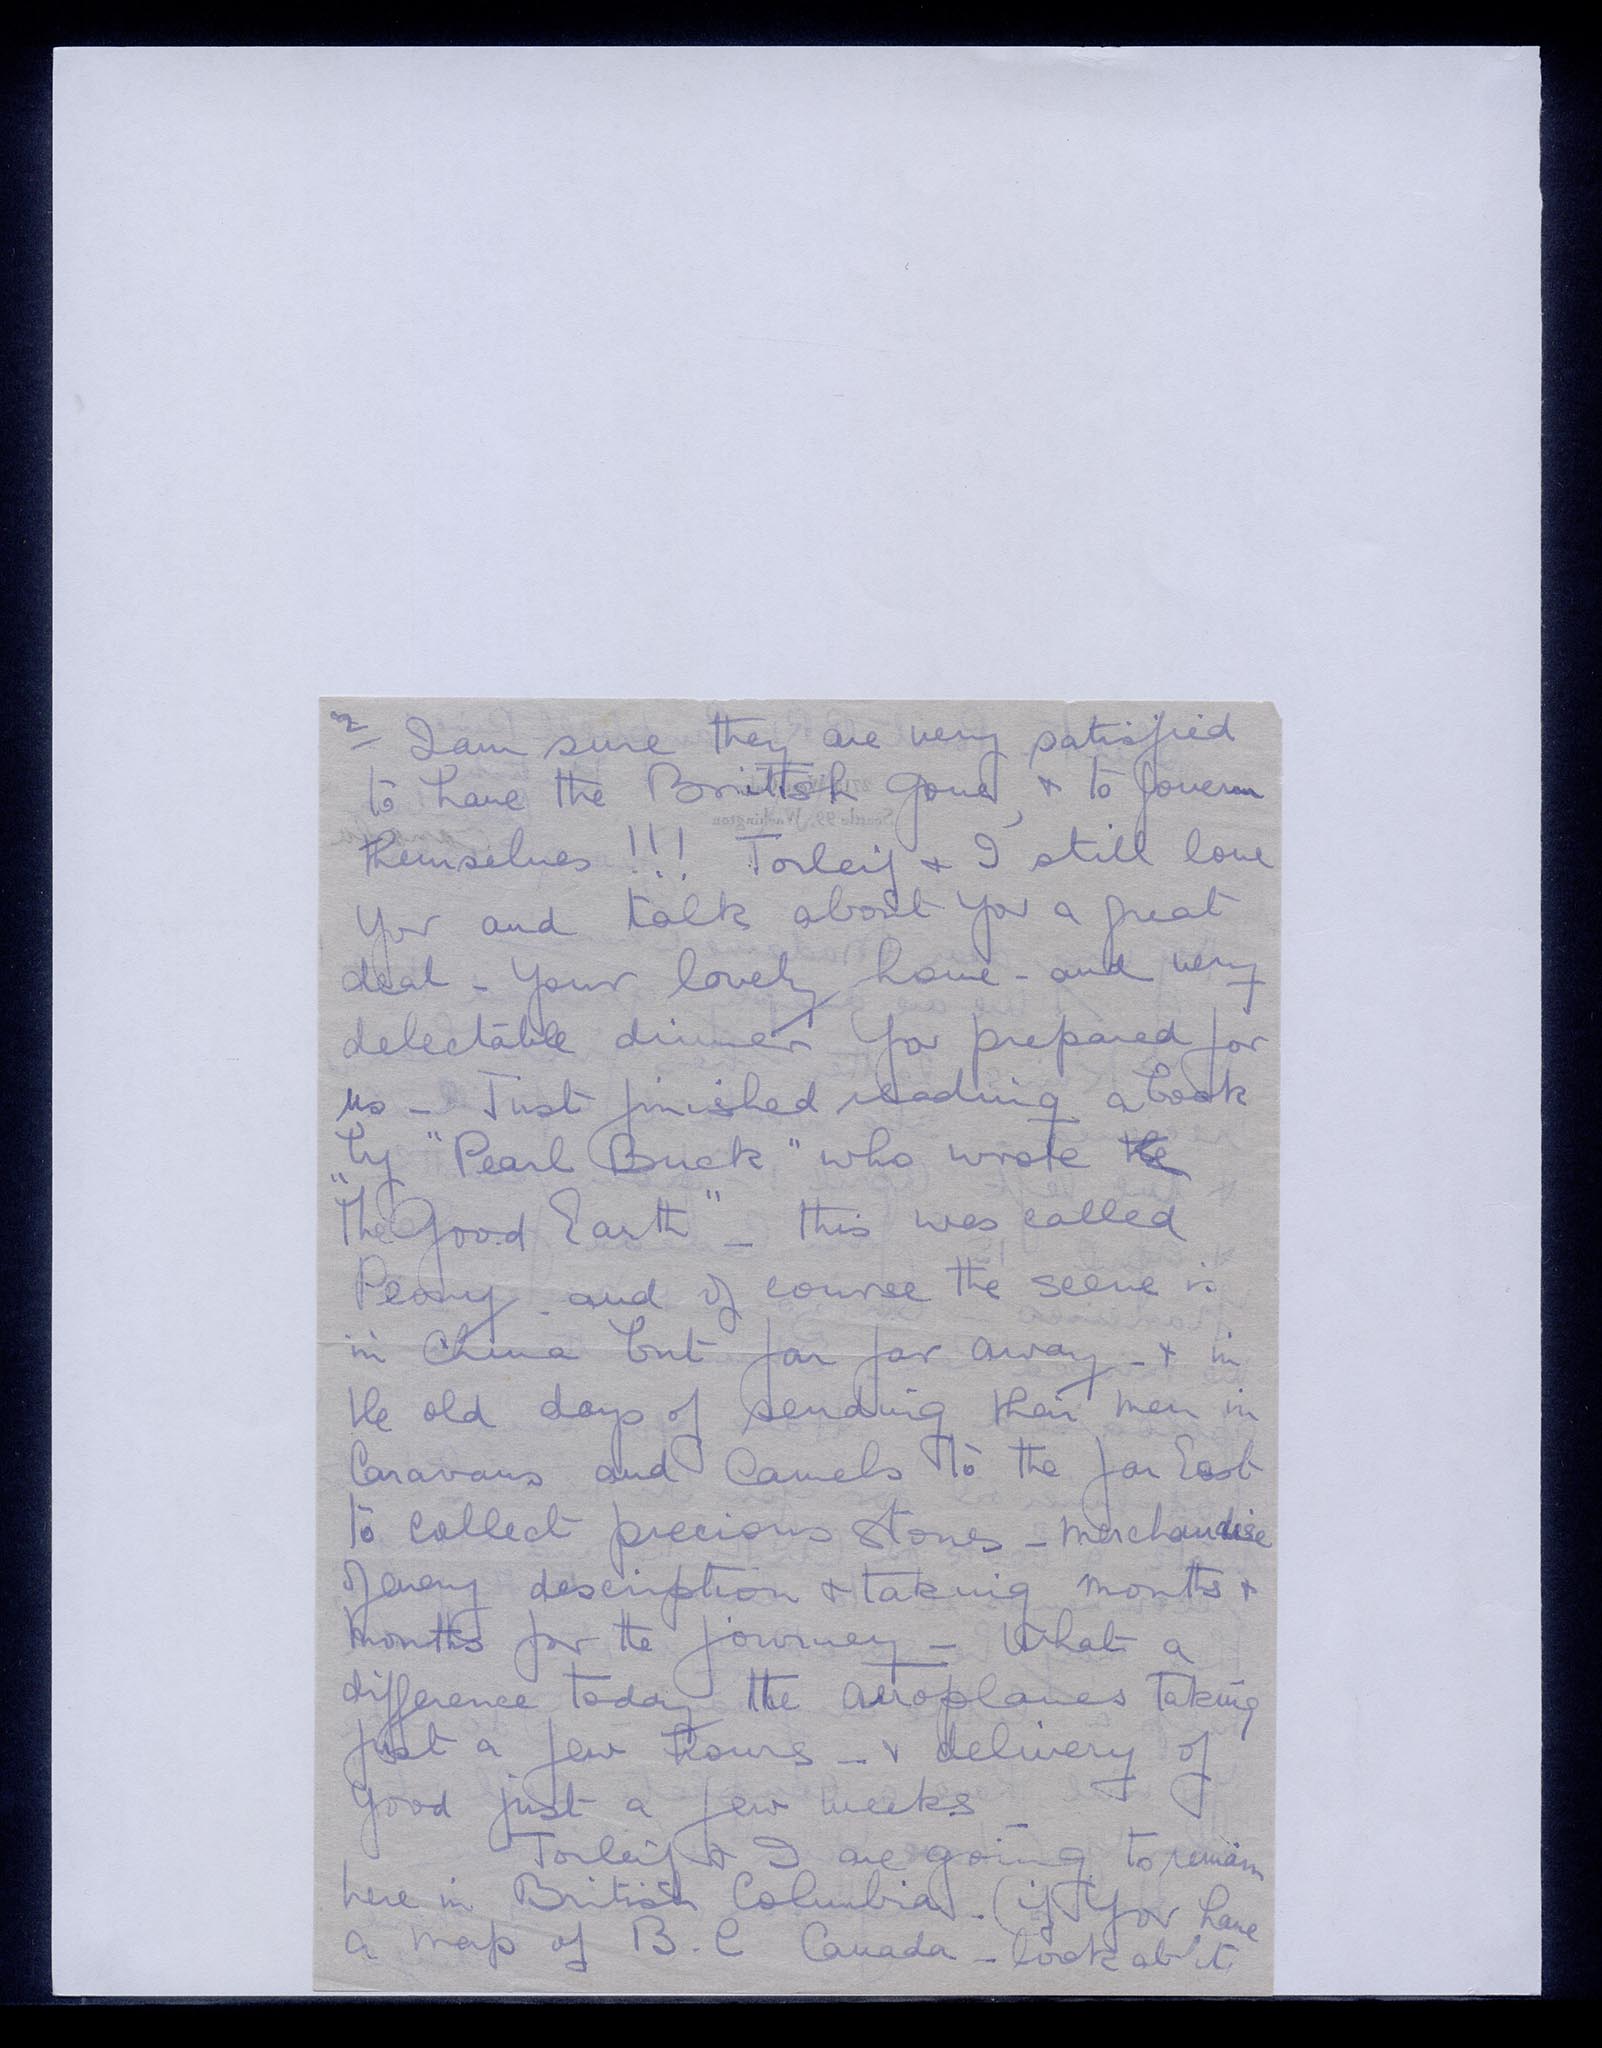 2/ I am sure they are very satisfied
to have the Brittish gone, & to govern
themselves !!! Torleif & I still love
you and talk about you a great
deal - your lovely home - and very
delectable dinner you prepared for
us - Just finished reading a book
by "Pearl Buck" who wrote the
"The Good Earth" - this was called
Peony - and of course the scene is
in China but far far away - & in
the old days of sending their men in
Caravans and Camels to the far East
to collect precious stones - merchandise
of every description & taking months &
months for the journey - What a
difference today the aeroplanes taking
just a few hours - & delivery of
good just a few weeks -
Torleif & I are going to remain
here in British Columbia - (if you have
a map of B.C Canada - look at it